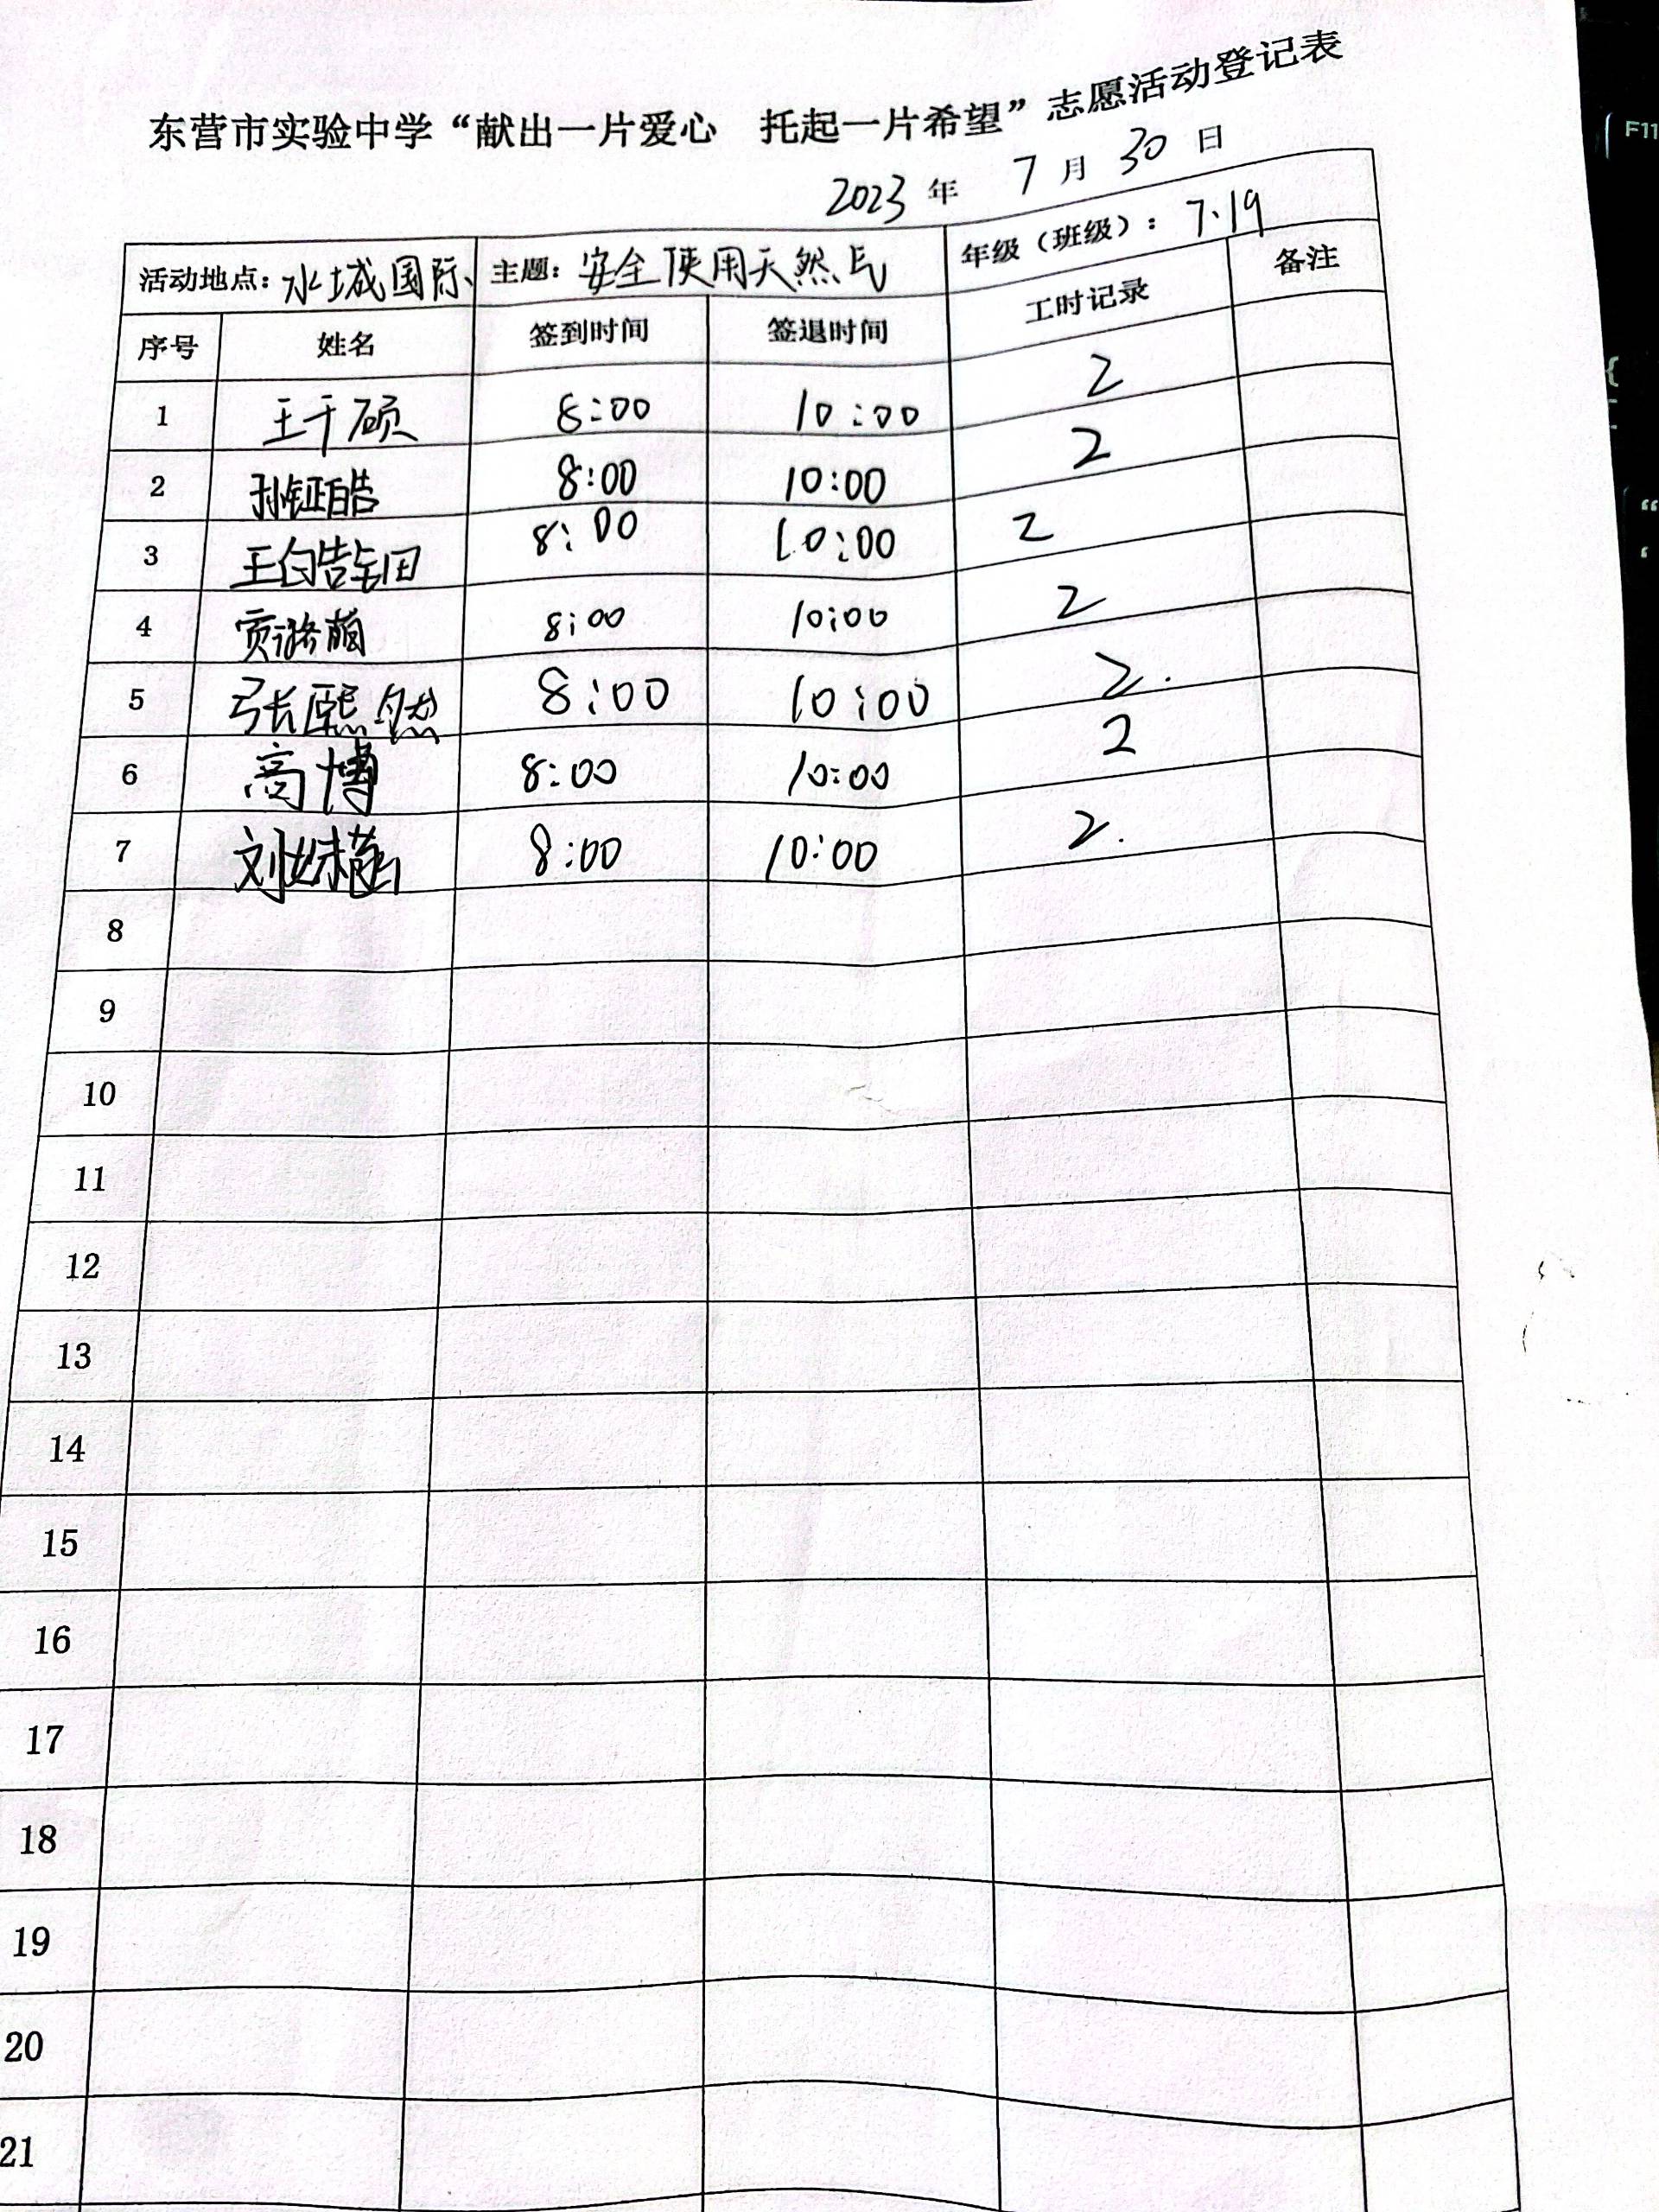 东营市实验中学“献出一片爱心 托起一片希望”志愿活动登记表
2023 年 7 月 30 日
活动地点：水城国际 主题：安全使用天然气 年级（班级）：7.19
序号 姓名 签到时间 签退时间 工时记录 备注
1 王千硕 8:00 10:00 2
2 孙钲皓 8:00 10:00 2
3 王 8:00 10:00 2
4 贾潞萌 8:00 10:00 2
5 张熙然 8:00 10:00 2.
6 高博 8:00 10:00 2
7 刘姝菡 8:00 10:00 2.
8
9
10
11
12
13
14
15
16
17
18
19
20
21
F11
{
“
‘